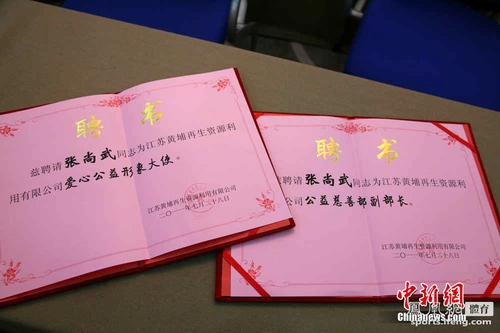 聘书
兹聘请张尚武同志为江苏黄埔再生资源利
用有限公司爱心公益形象大使。
江苏黄埔再生资源利用有限公司
二〇一一年七月二十八日
聘书
兹聘请张尚武同志为江苏黄埔再生资源利
用有限公司公益慈善部副部长。
江苏黄埔再生资源利用有限公司
二〇一一年七月二十八日
中新网
www.chinanews.com
鳳凰網體育
sports.ifeng.com